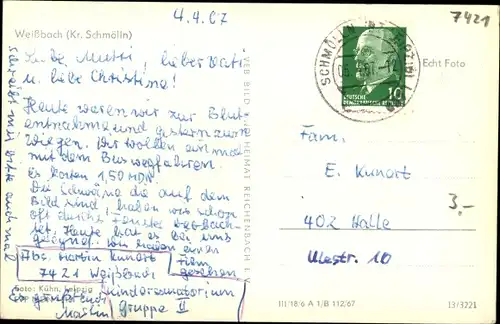 4.4.67
7421
Weißbach (Kr. Schmölln)
Liebe Mutti, lieber Vati
u. liebe Christina!
Heute waren wir zur Blut-
entnahme und gestern zum
Wiegen. Wir wollen einmal
mit dem Bus wegfahren.
Es kosten 1,50 MDN
Die Schwäne die auf dem
Bild sind, haben wir schon
oft durchs Fenster beobach-
tet. Heute hat es bei uns
geregnet. Wir haben einen
Film
gesehen
Abs. Martin Kunort
7421 Weißbach
Kindersanatorium
Gruppe II
Es grüßt euch
Martin
schreibt mir bitte auch mal
Foto: Kühn, Leipzig
VEB BILD HEIMAT REICHENBACH i. V.
SCHMÖLLN
10
DEUTSCHE
DEMOKRATISCHE REPUBLIK
Echt Foto
Fam.
E. Kunort
3.-
402 Halle
Ulestr. 10
III/18/6 A 1/B 112/67
13/3221